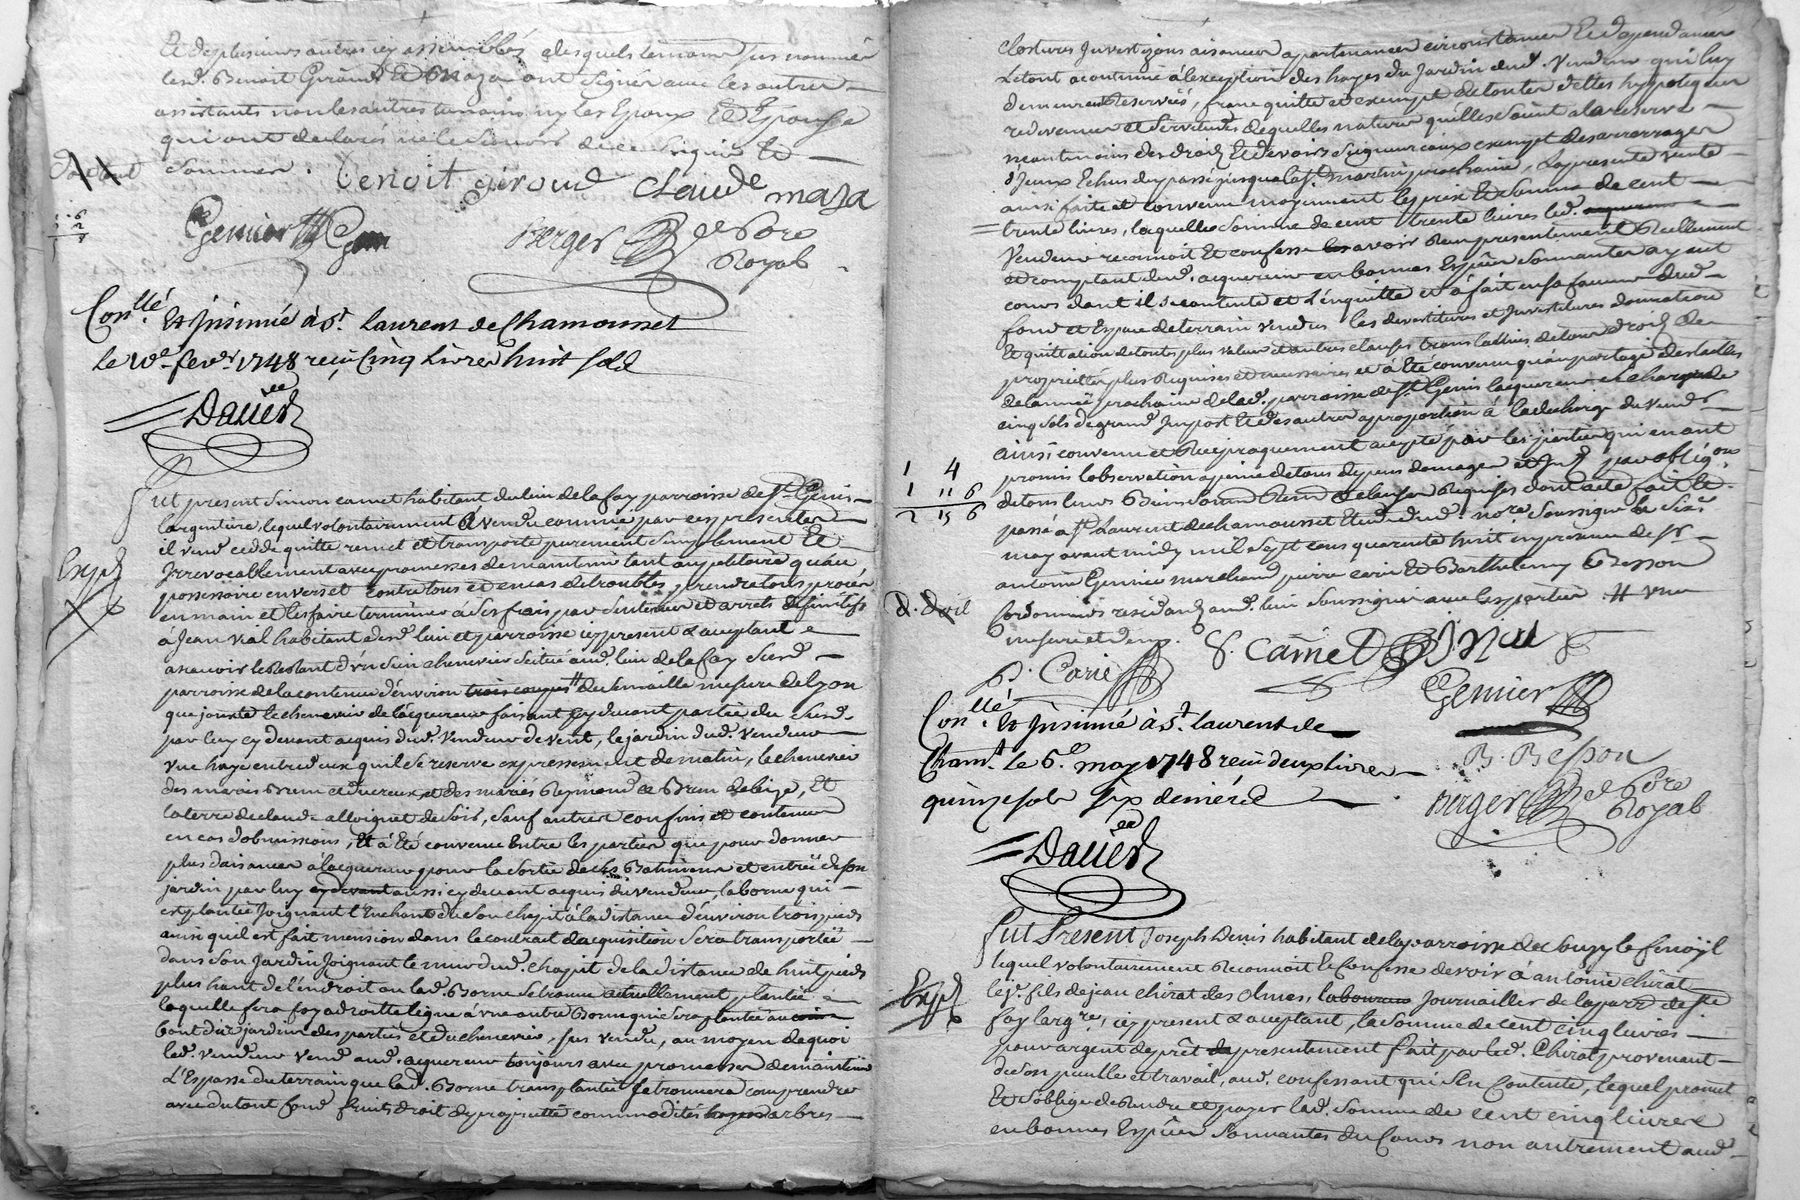 Et de plusieurs autres icy assemblés desquels temoins sus nommés
led. Benoit Giraud Et Maza ont signés avec les autres
assistants non les autres temoins ny les Epoux Et Epouse
qui ont declarés ne le scavoir de ce enquis Et
sommés.
Benoit giroud claude maza
Genier
Berger
Nore
Royal
Con.llé Et Insinué à St. Laurent de Chamousset
le 10e fevr 1748 reçu Cinq Livres huit sols
Daüier
Expé
Fut present Simon camet habitant du lieu de la fay parroisse de St. Genis
largentiere, lequel volontairement à vendu comme par ces presentes
il vend cedde quitte remet et transporte purement simplement Et
Irrevocablement avec promesses de maintenir tant au petitoire qu'au
possessoire envers et contre tous et en cas de troubles prendre tous procés
en main et les faire terminer à ses frais par sentences et arrets definitifs
à Jean vial habitant desd. lieu et parroisse icy present & acceptant
ascavoir le restant d'un sien chenevier scitué aud. lieu de la fay susd.
parroisse de la contenue d'environ trois coupes # de semaille mesure de Lyon
que jouxte le chenevier de l'acquereur faisant cy devant partie du susd.
par luy cy devant acquis dud. vendeur de vent, le jardin dud. vendeur
une haye entre deux qu'il se reserve expressement de matin, le chenevier
des mariés Brun et des mariés Reymond & Brun de bize, Et
la terre de claude de soir, sauf autres confins et contenue
en cas d'obmissions, Et à été convenu entre les parties que pour donner
plus daisance à lacquereur pour la sortie de ses Batiments et entrée de son
jardin par luy cy devant aussi cy devant acquis du vendeur, la borne qui
est plantée joignant l'Enchant de son chapit à la distance d'environ trois pieds
ainsi quil est fait mension dans le contrat dacquisition sera transportée
dans son Jardin joignant le mur dud. chapit de la distance de huit pieds
plus haut de l'endroit ou lad. Borne se trouve actuellement plantée
laquelle fera foy a droitte ligne a une autre Borne qui sera plantée au
bout du jardin des parties et du chenevier, sus vendu, au moyen de quoi
led. vendeur vend aud. acquereur toujours avec promesses de maintenir
L'Espasse du terrain que lad. Borne transplantée se trouvera comprendre
avec du tout fond fruits droit de proprietté commodités arbres
clostures Investizons aisances apartenances circonstances Et dependances
Le tout a continué à l'exception des hayes du Jardin dud. vendeur qui luy
demeurent Reservées, franc quitte et exempt de toutes dettes hypoteques
redevances et servitudes de quelles natures qu'elles soient a la reserve
neantmoins des droits Et devoirs seigneuriaux exempt des arrerages
d'Jceux Echus du passé jusqu'a la St. martin prochaine, La presente vente
ainsi faite et convenue moyennant le prix Et somme de cent
trente livres, laquelle somme de cent trente livres led.
vendeur reconnoit Et confesse avoir Reçu presentement Reellement
et comptant dud. acquereur en bonnes Espèces sonnantes ayant
cours dont il se contente et L'enquitte et a fait en sa faveur dud.
fond et Espace de terrain vendus les devestitures et Investitures donnation
Et quittation de toutes plus values et autres clauses translatives de tous droits de
proprietté plus Requises et necessaires et a été convenu qu'au partage des tailles
de l'année prochaine de lad. parroisse de St. Genis lacquereur se chargera de
cinq sols de grand Impost Et des autres a proportion à la decharge du vendr
Ainsi convenu et Reciproquement accepté par les parties qui en ont
promis l'observation a peine de tous depens domages et Int. par obligons
de tous leurs Biens Renon & clauses Requises dont acte fait Et
passé à St. Laurent de chamousset Etude dud. nore. soussigné le sixe.
may avant midy mil sept cens quarante huit en presence de Sr.
antoine Genier marchand pierre carie Et Barthelemy Besson
cordonniers residants aud. lieu soussignés avec les parties # une
mesure et demy.
1 4
1 11 6
2 15 6
d. Dail
S. Camet J Vial
P. Carie
Genier
Con.llé Et Insinué à St. laurent de
Cham.t le 6e. may 1748 reçu deux livres
quinze sols six deniers
B. Besson
Berger
Nore
Royal
Daüier
Expé
Fut Present Joseph Denis habitant de la parroisse de Duzy le fenoÿl
lequel volontairement Reconnoit Et Confesse devoir à antoine chirat
le jé. fils de jean chirat des Olmes, laboureur Journailler de la parr de Ste
foy largre, icy present & acceptant, la somme de cent cinq livres
pour argent de prêt presentement fait par led. Chirat provenant
de son peculle et travail, aud. confessant qui s'en Contente, lequel promet
Et s'oblige de Rendre et payer lad. somme de cent cinq livres
en bonnes Espèces sonnantes du Cours non autrement aud.